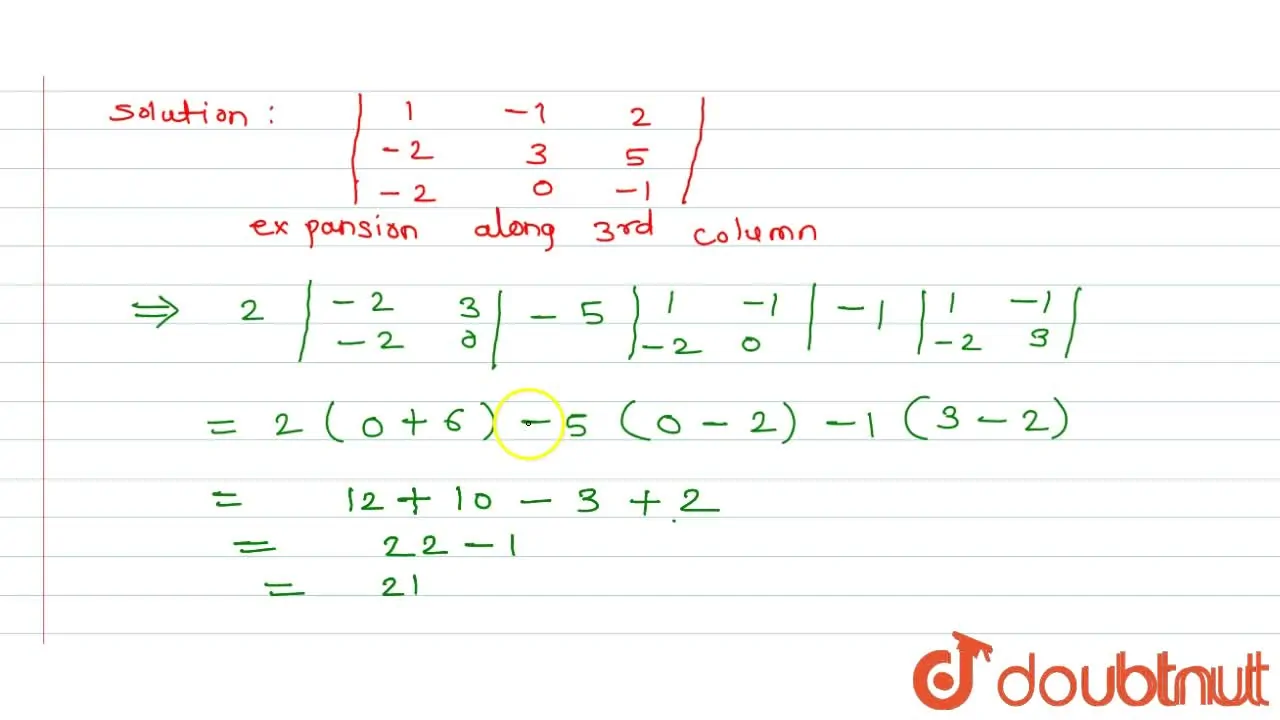 Solution : | 1 -1 2 |
| -2 3 5 |
| -2 0 -1 |
expansion along 3rd column
⇒ 2 | -2 3 | - 5 | 1 -1 | - 1 | 1 -1 |
| -2 0 | | -2 0 | | -2 3 |
= 2 ( 0 + 6 ) - 5 ( 0 - 2 ) - 1 ( 3 - 2 )
= 12 + 10 - 3 + 2
= 22 - 1
= 21
doubtnut